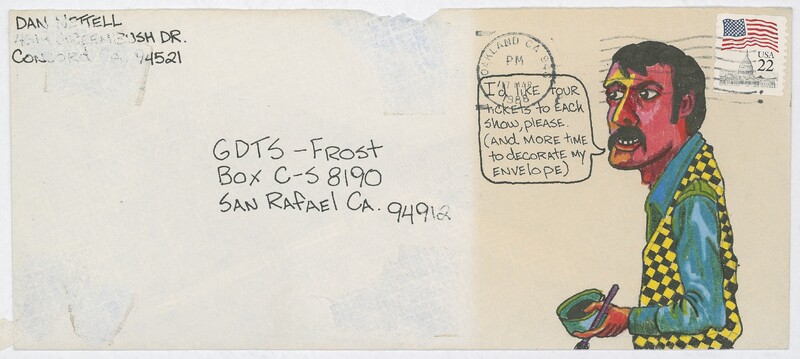 DAN NETTELL
BUSH DR.
CONCORD CA. 94521
OAKLAND CA
PM
MAR
1988
USA
22
I'd LIKE FOUR
tickets to EACH
show, PLEASE.
(AND MORE TIME
TO DECORATE MY
ENVELOPE)
GDTS - FROST
BOX C-S 8190
SAN RAFAEL CA. 94912